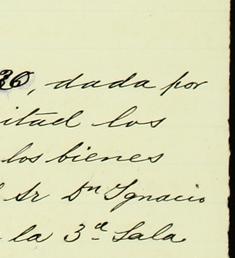 36, dada por
itad los
los bienes
Sr Dn Ignacio
la 3a Sala